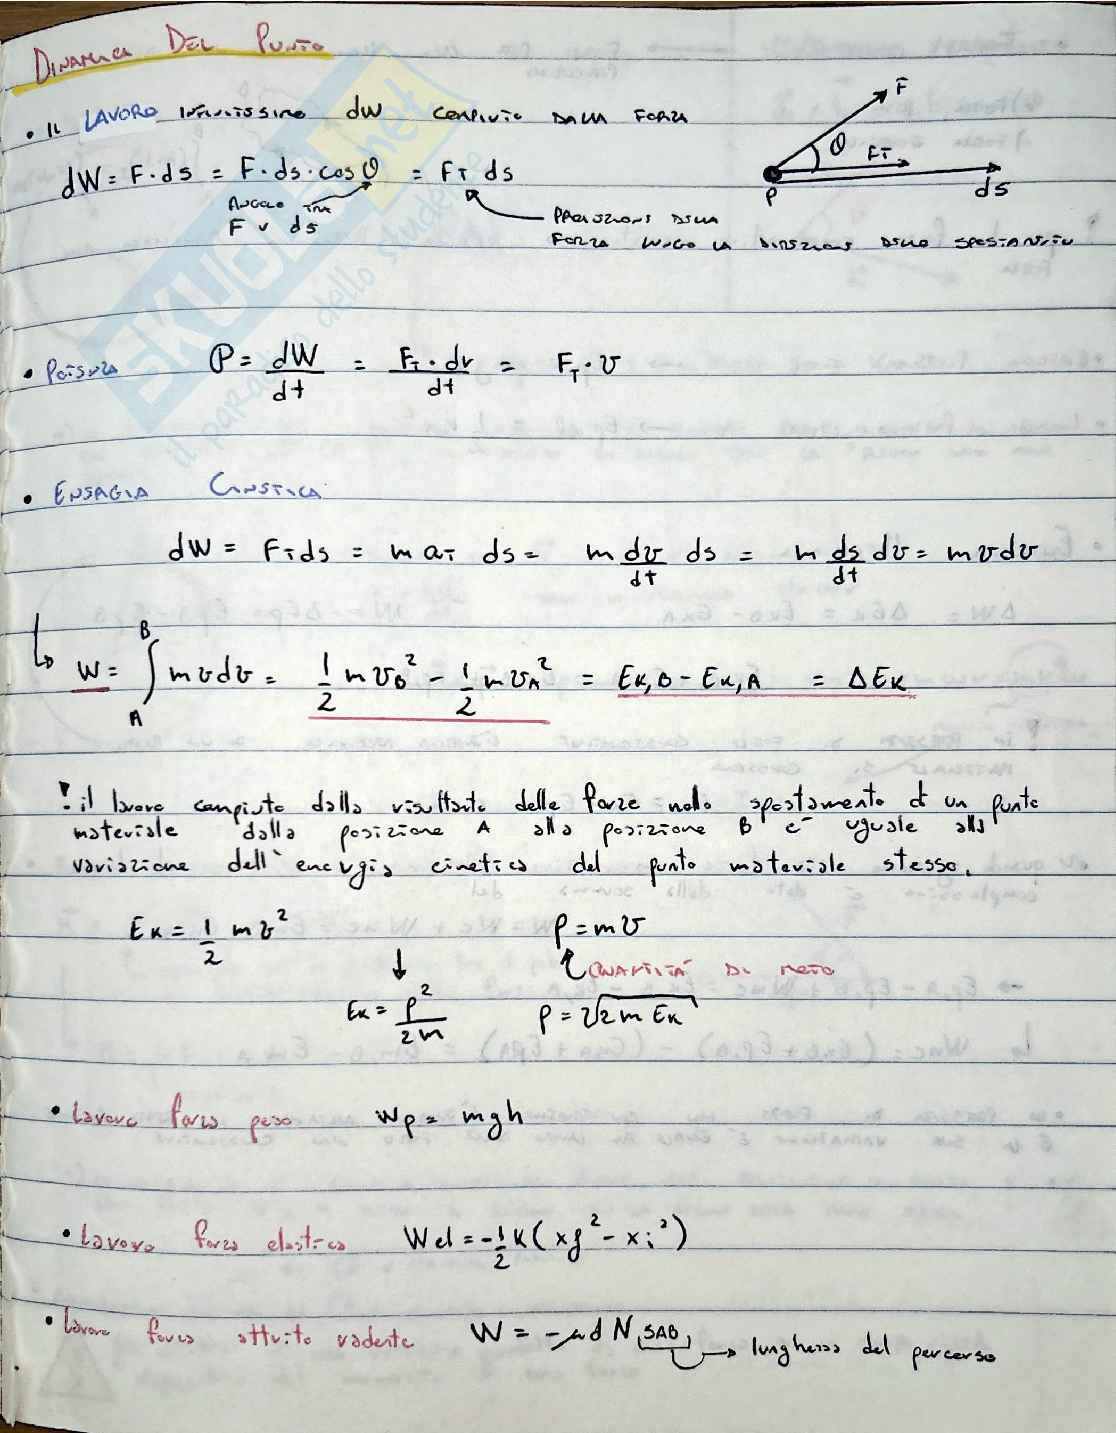 DINAMICA DEL PUNTO
• IL LAVORO INFINITESIMO dW COMPIUTO DALLA FORZA
dW = F · ds = F · ds · cos θ = FT ds
ANGOLO TRA
F v ds
PROIEZIONE DELLA
FORZA LUNGO LA DIREZIONE DELLO SPOSTAMENTO
F
θ
FT
P
ds
• POTENZA P = dW/dt = FT · dr/dt = FT · v
• ENERGIA CINETICA
dW = FT ds = m aT ds = m dv/dt ds = m ds/dt dv = m v dv
↳ W = ∫_A^B m v dv = 1/2 m vB² - 1/2 m vA² = EK,B - EK,A = ΔEK
! il lavoro compiuto dalla risultante delle forze nello spostamento di un punto
materiale dalla posizione A alla posizione B è uguale alla
variazione dell'energia cinetica del punto materiale stesso.
EK = 1/2 m v² p = m v
↓ QUANTITÀ DI MOTO
EK = p²/2m p = √2 m EK
• Lavoro forza peso Wp = mgh
• Lavoro forza elastica Wel = -1/2 K (xf² - xi²)
• Lavoro forza attrito radente W = -μd N SAB → lunghezza del percorso
SKUOLA.net
il paradiso dello studente